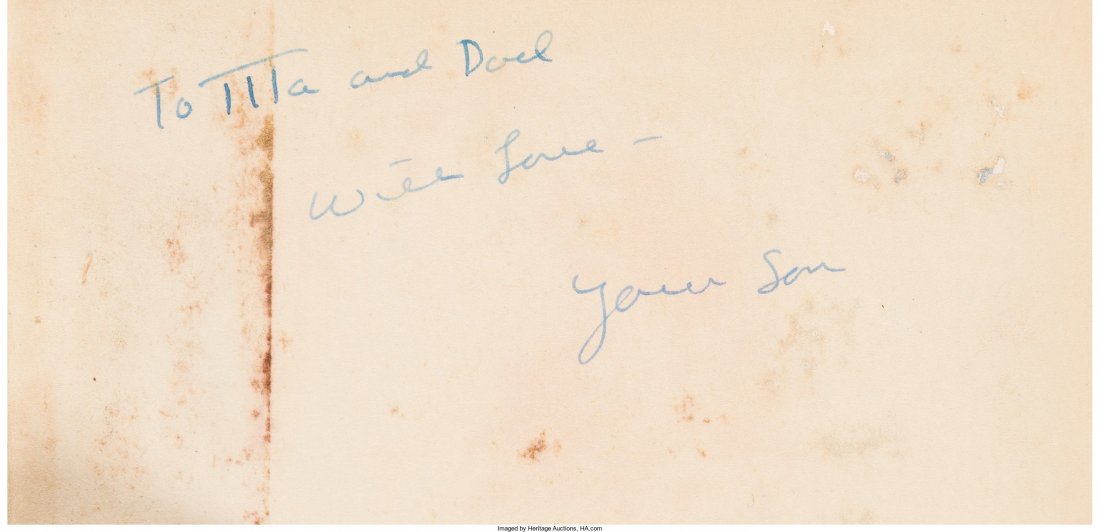 To Tita and Dad
With Love -
Your Son
Imaged by Heritage Auctions, HA.com